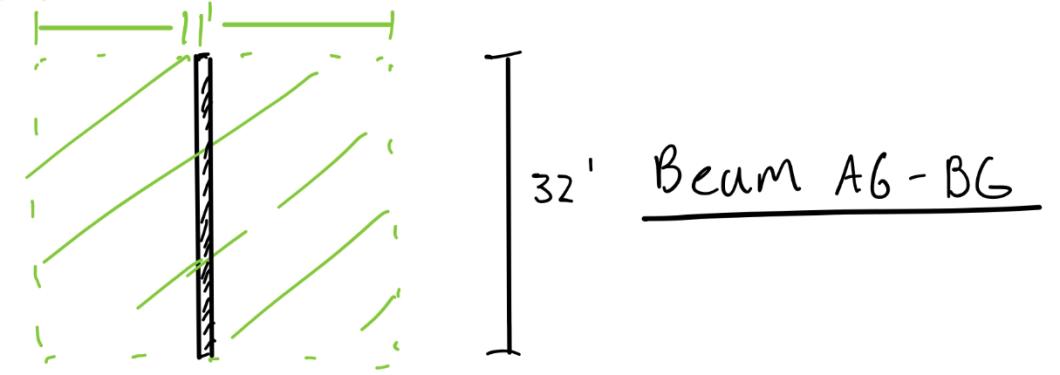 11'
32'
Beam A6-B6